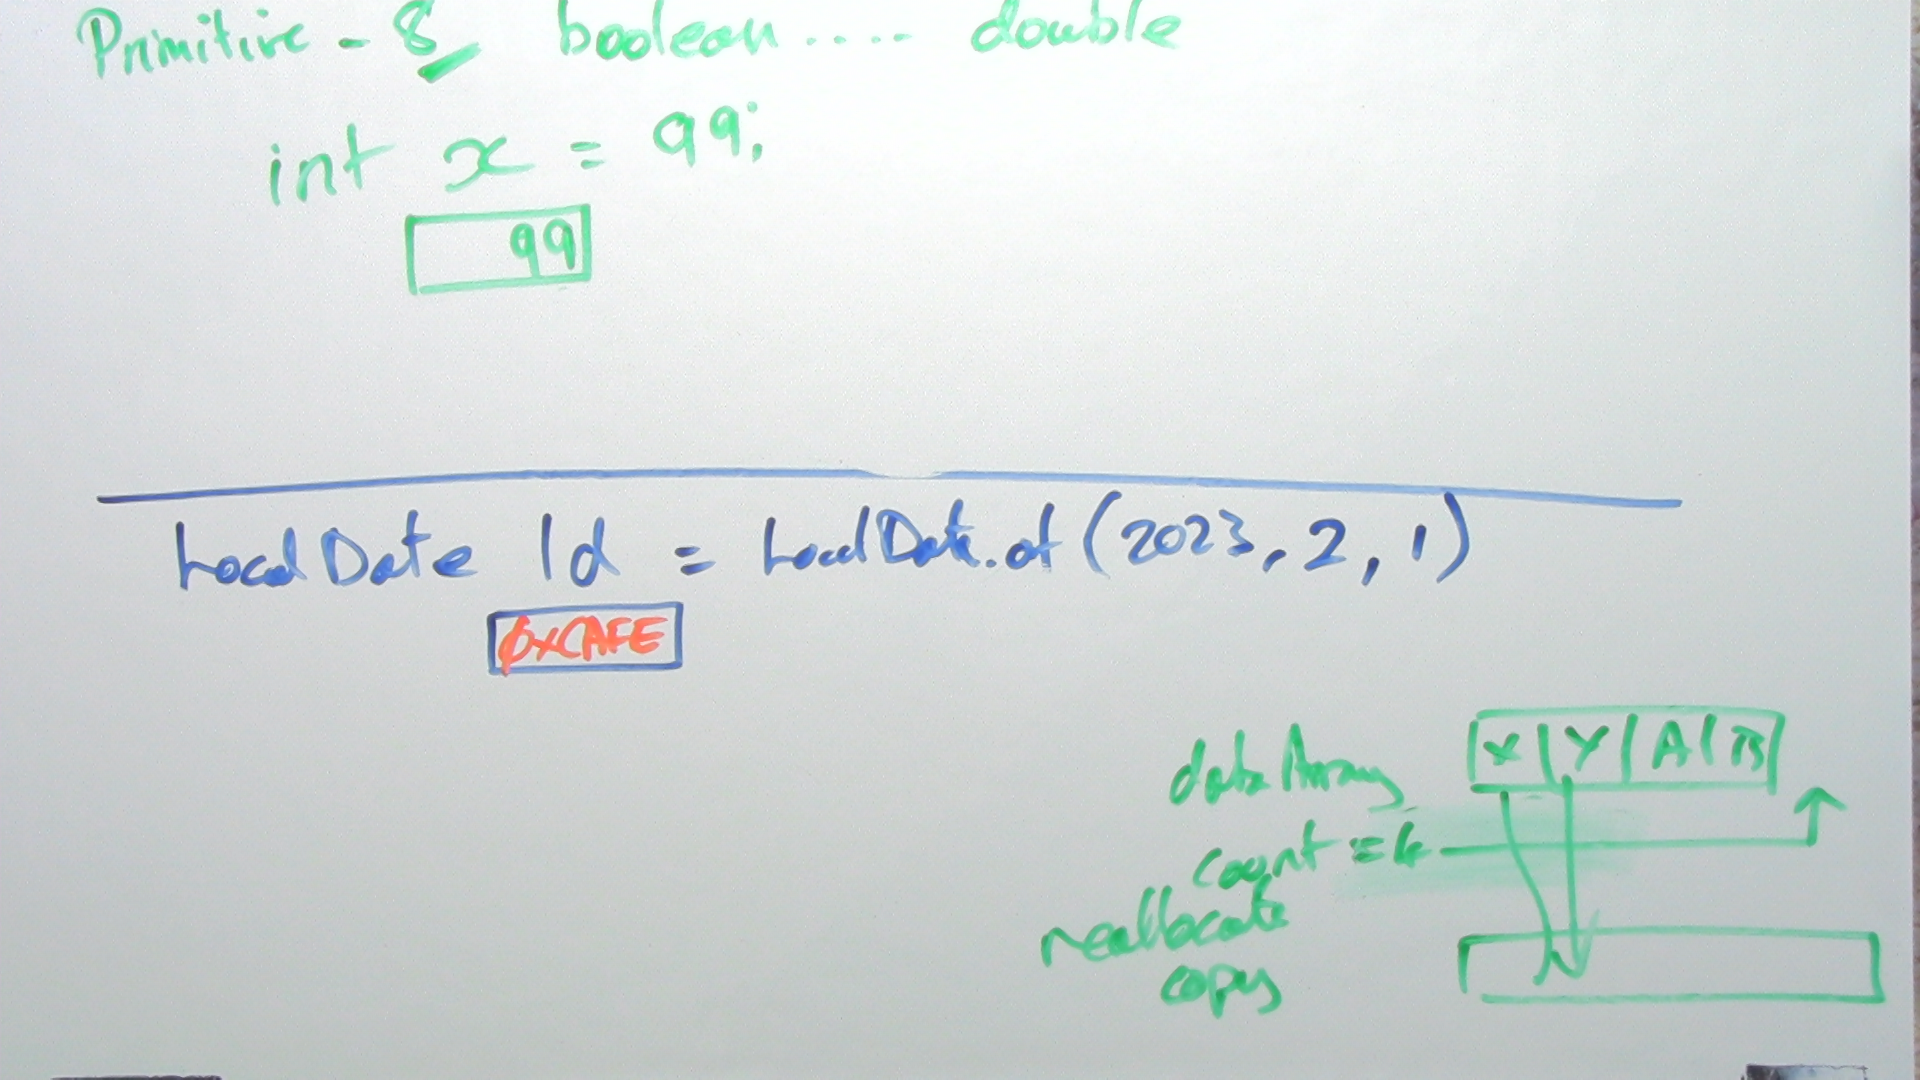 Primitive - 8 boolean .... double
int x = 99;
99
LocalDate ld = LocalDate.of(2023, 2, 1)
0xCAFE
X Y A B
dataArray
count = 4
reallocate
copy